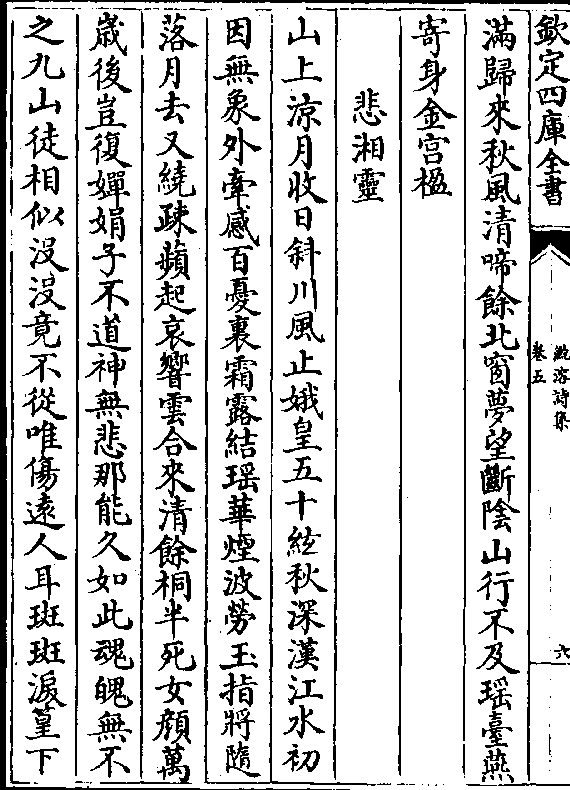 欽定四庫全書
澠洛詩集
卷五
六
滿歸來秋風清啼餘北窗夢望斷陰山行不及瑶臺燕
寄身金宫楹
悲湘靈
山上涼月收日斜川風止娥皇五十絃秋深漢江水初
因無象外牽感百憂裏霜露結瑶華煙波勞玉指將隨
落月去又繞疎蘋起哀響雲合來清餘桐半死女顔萬
歲後豈復嬋娟子不道神無悲那能久如此魂魄無不
之九山徒相似没没竟不從唯傷遠人耳斑斑淚篁下